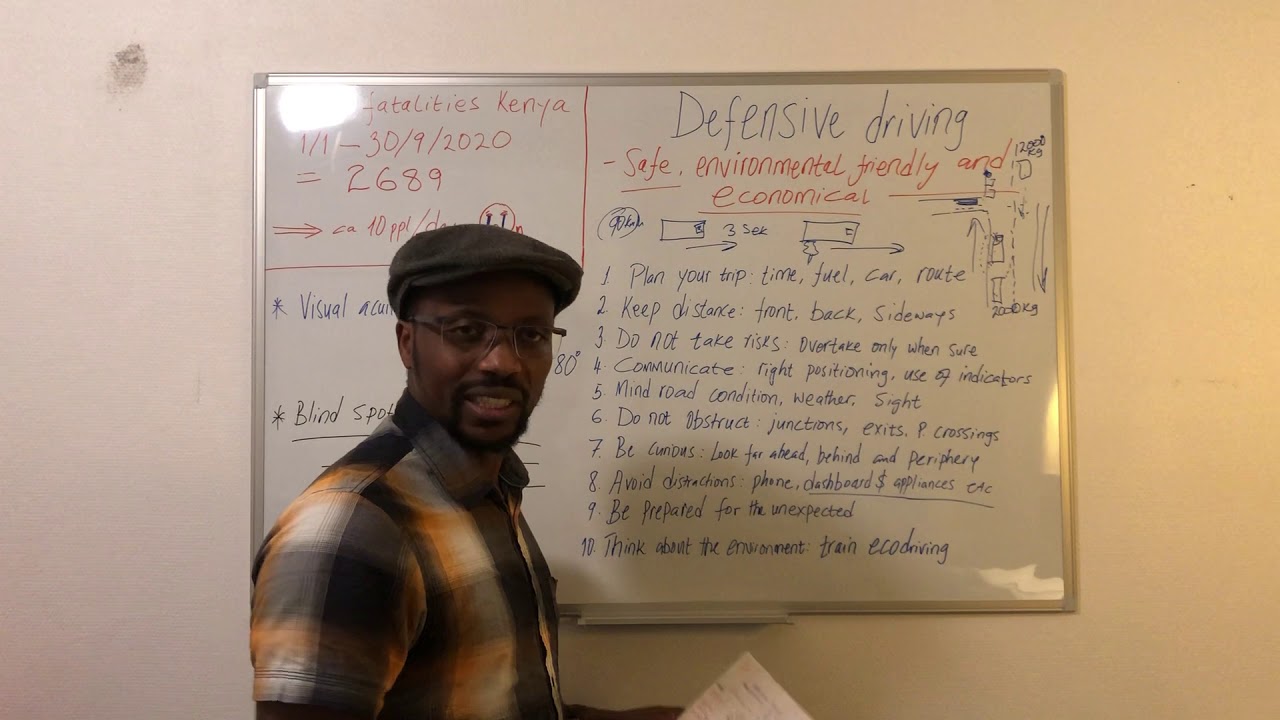 fatalities Kenya
1/1 – 30/9/2020
= 2689
⇒ ca 10 ppl/
* Visual
80°
* Blind
Defensive driving
- Safe, environmental friendly and
economical
90 km/h
3 Sek
12000
kg
2000 kg
1. Plan your trip: time, fuel, car, route
2. Keep distance: front, back, Sideways
3. Do not take risks: Overtake only when sure
4. Communicate: right positioning, use of indicators
5. Mind road condition, weather, Sight
6. Do not Obstruct: junctions, exits, P. crossings
7. Be curious: Look far ahead, behind and periphery
8. Avoid distractions: phone, dashboard $ appliances etc
9. Be Prepared for the unexpected
10. Think about the environment: train ecodriving